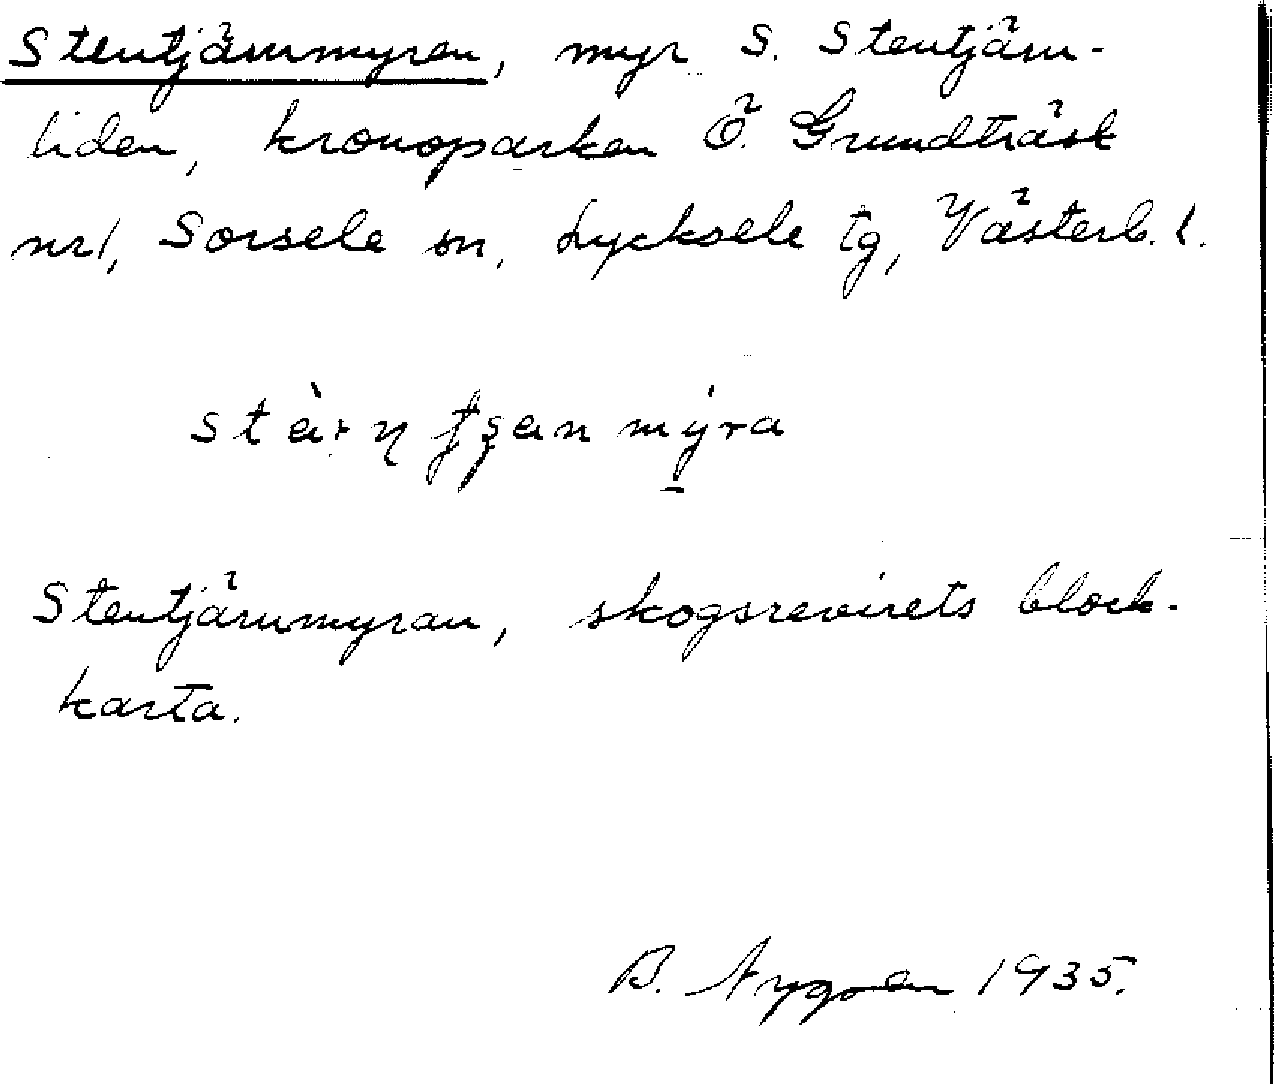 Stentjärnmyren, myr S. Stentjärn-
liden, kronoparken Ö. Grundträsk
nr 1, Sorsele sn, Lycksele tg, Västerb. l.
Stentjärnmyran, skogsrevirets block-
karta.
B. Nygren 1935.